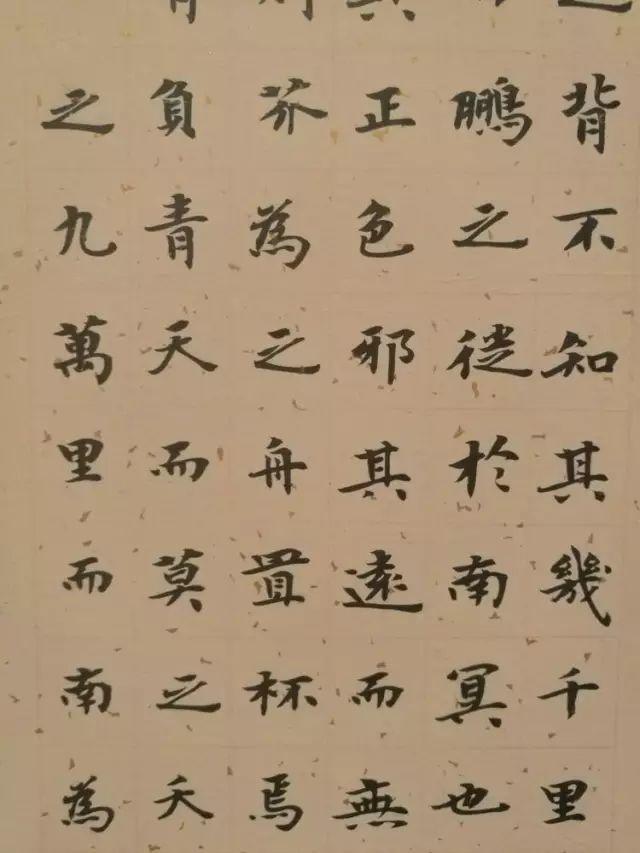 背不知其幾千里
鵬之徙於南冥也
其正色邪其遠而無
則芥為之舟置杯焉
背負青天而莫之夭
之九萬里而南為